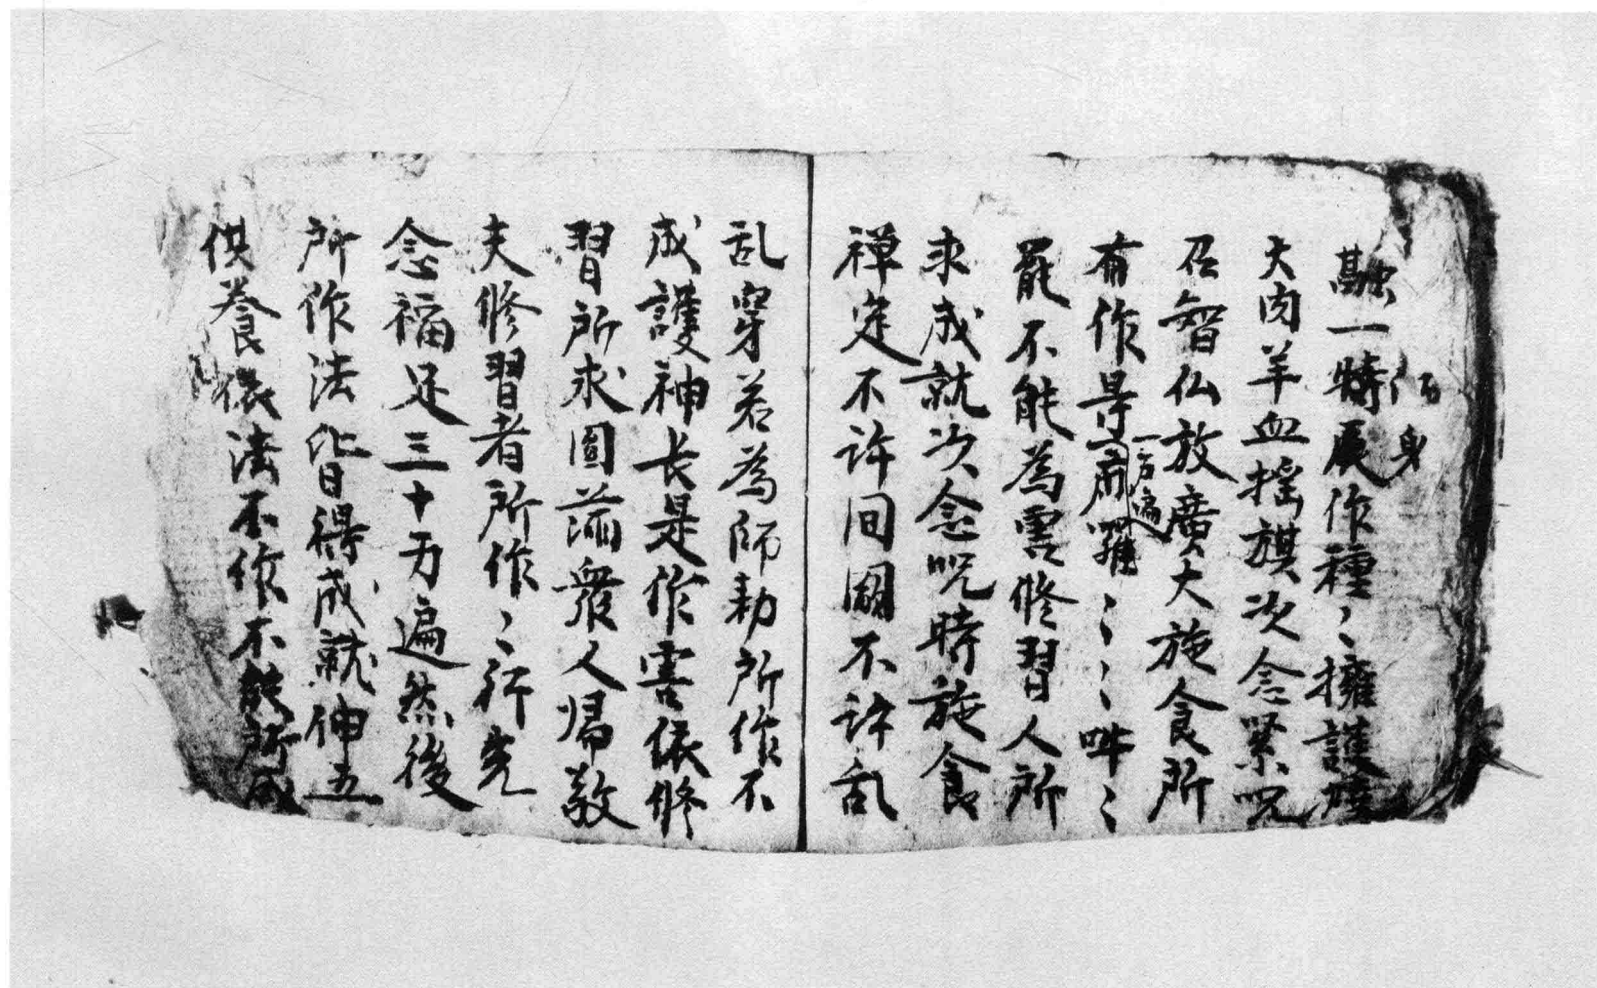 身
一時展作種〻擁護燒
大肉羊血摇旗次念緊咒
召智仏放廣大施食所
有作〻〻〻吽〻
一万遍
罷不能為害修習人所
求成就次念咒時施食
禪定不許间不許乱
乱穿若為師勑所作不
成護神长是作害依修
習所求圎蒲衆人帰敬
夫修習者所作〻行先
念福足三十万遍然後
所作法皆得成就伸五
供養依法不作不能所成